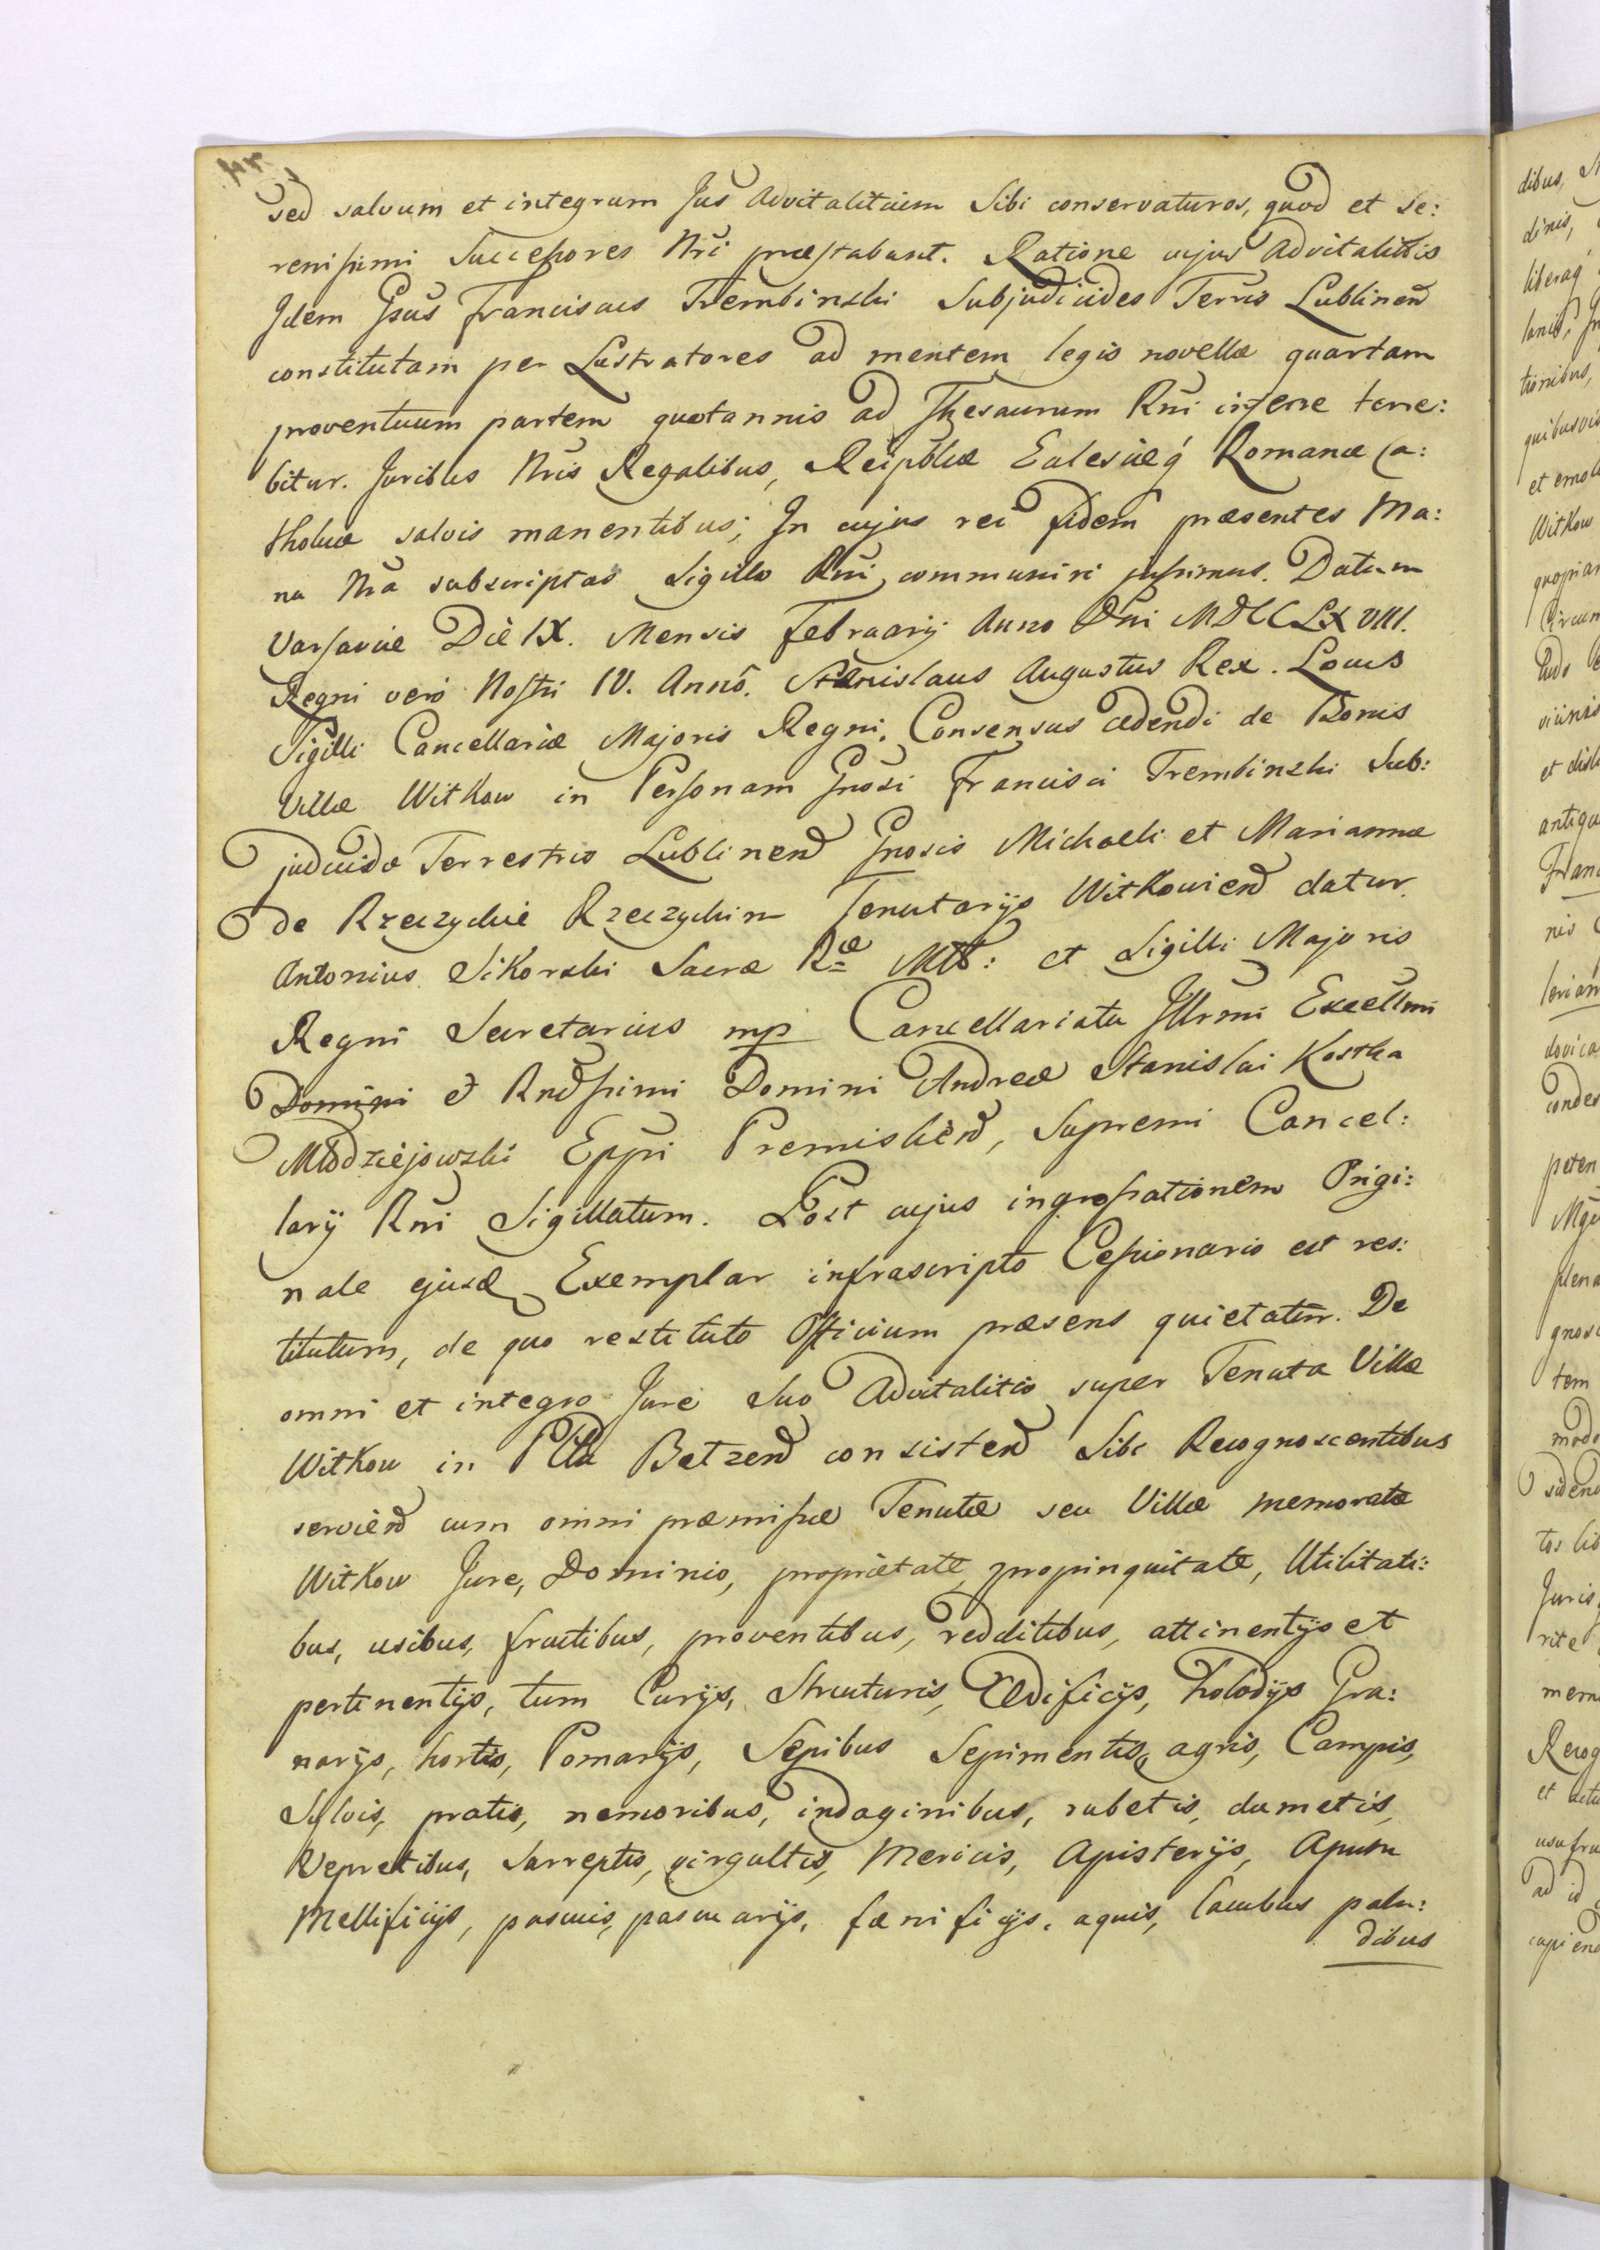 sed salvum et integrum Jus advitalitium Sibi conservaturos, quod et se:
renissimi Successores Nri præstabunt. Ratione cujus advitalitis
Idem Gsus Franciscus Trembinski Subjudicides Terris Lublinen
constitutam per Lustratores ad mentem legis novellæ quartam
proventuum partem quotannis ad Thesaurum Rni inferre tene:
bitur. Juribus Nris Regalibus, Reipblicæ Eclesiæq Romanæ Ca:
tholicæ salvis manentibus; In cujus rei fidem præsentes Ma:
nu Nra subscriptas Sigillo Rni communiri jussimus. Datum
Varsaviæ Die IX. Mensis Februarij Anno Dni MDCCLXVIII.
Regni vero Nostri IV. Anno. Stanislaus Augustus Rex. Locus
Sigilli Cancellariæ Majoris Regni. Consensus cedendi de Bonis
Villæ Witkow in Personam Gnosi Francisci Trembinski Sub:
judicidæ Terrestris Lublinen Gnosis Michaeli et Mariannæ
de Rzeczyckie Rzeczyckim Tenutarijs Witkowien datur.
Antonius Sikorski Sacræ Ræ Mtis: et Sigilli Majoris
Regni Secretarius mp Cancellariatu Illrmi Excellmi
Domini et Rndssimi Domini Andreæ Stanislai Kostka
Młodziejowski Eppi Premislien, Supremi Cancel:
larij Rni Sigillatum. Post cujus ingrossationem Origi:
nale ejusd Exemplar infrascripto Cessionario est res:
titutum, de quo restituto Officium præsens quietatur. De
omni et integro Jure Suo Advitalitio super Tenuta Villæ
Witkow in Pltu Betzen consisten Sibi Recognoscentibus
servien cum omni præmissæ Tenutæ seu Villæ memoratæ
Witkow Jure, Dominio, proprietate, propinquitate, Utilitati:
bus, usibus, fructibus, proventibus, redditibus, attinentijs et
pertinentijs, tum Curijs, Structuris, Ædificijs, Folodijs Gra:
narijs, hortis, Pomarijs, Sepibus Sepimentis, agris, Campis,
Sylvis, pratis, nemoribus, indaginibus, rubetis, dumetis,
Vepretibus, Sarreptis, virgultis, Mericis, Apisterijs, Apum
Mellificijs, pascuis, pascuarijs, fænificijs, aquis, lacubus palu:
dibus